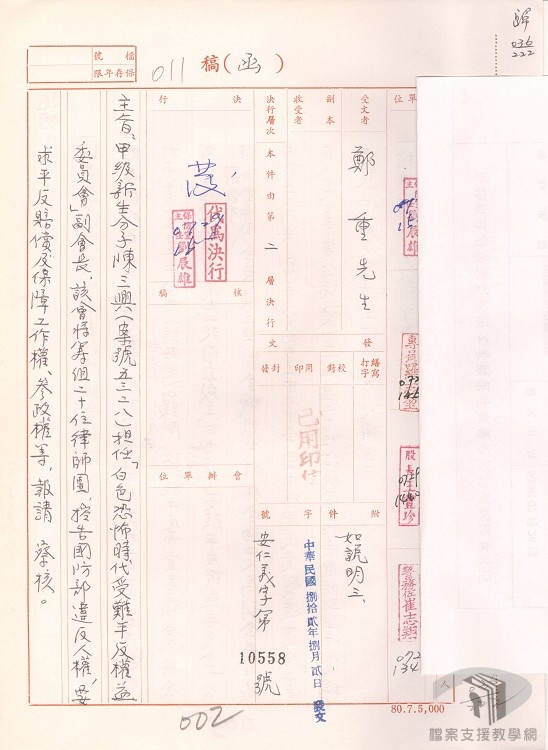 檔號
保存年限
011
稿(函)
036
222
單位
受文者
鄭重先生
副本
收受者
決行層次
本件由第二層決行
決行
發
代為決行
核稿
會辦單位
發文
繕寫打字
校對
用印
封發
已用印
附件
如說明三
字號
安仁義字第10558號
中華民國捌拾貳年捌月貳日發文
主旨:甲級新生分子陳三興(案號五三二八)担任「白色恐怖時代受難平反權益
委員會」副會長,該會將籌組二十位律師團,控告國防部違反人權,要
求平反賠償及保障工作權、參政權等,報請 察核。
072
134
002
80.7.5,000
檔案支援教學網